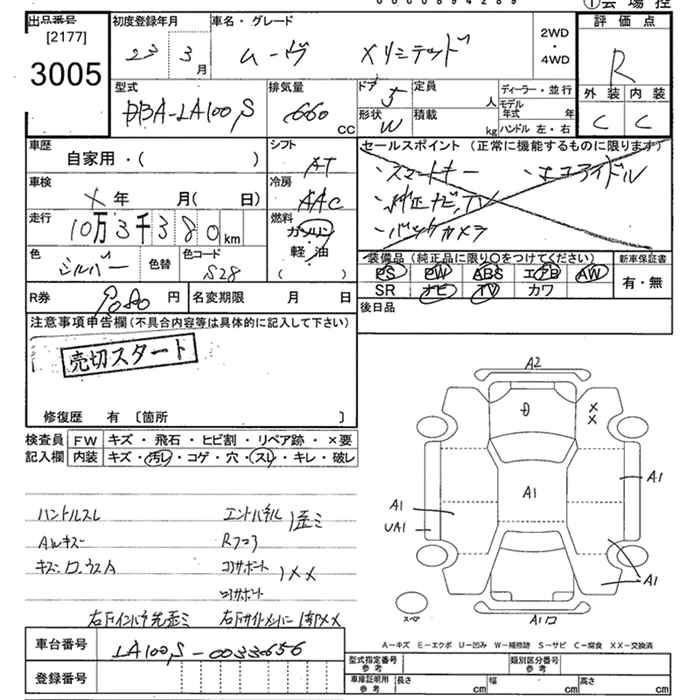 0000894289
①会場控
出品番号
[2177]
3005
初度登録年月
23 3月
車名・グレード
ムーヴ Xリミテッド
2WD
・
4WD
評価点
R
外装 内装
C C
型式
DBA-LA100S
排気量
660 CC
ドア 5
形状 W
定員 人
積載 kg
ディーラー・並行
モデル年式 年
ハンドル 左・右
車歴
自家用・( )
シフト
AT
セールスポイント (正常に機能するものに限ります)
・スマートキー ・エコアイドル
・純正ナビ,TV
・バックカメラ
車検
X 年 月(日)
冷房
AAC
走行
10万3千380km
燃料
ガソリン
軽・油
( )
色
シルバー
色替
色コード
S28
装備品 (純正品に限り○をつけてください)
新車保証書
PS PW ABS エアB AW
SR ナビ TV カワ
有・無
R券 9080 円
名変期限 月 日
後日品
注意事項申告欄(不具合内容等は具体的に記入して下さい)
売切スタート
修復歴 有 〔箇所 〕
検査員
記入欄
FW キズ・飛石・ヒビ割・リペア跡・×要
内装 キズ・汚レ・コゲ・穴・スレ・キレ・破レ
ハンドルスレ
AWキズ
キズ・
エンドパネル 歪ミ
コアサポート 1××
右Fインパネ先歪ミ
右Fサイドメンバー
A2
A1
A1
A1
UA1
A1
スペア
車台番号 LA100S-0033656
登録番号
A-キズ E-エクボ U-凹み W-補修跡 S-サビ C-腐食 XX-交換済
型式指定番号
参考
類別区分番号
参考
車庫証明用
参考
長さ cm
幅 cm
高さ cm